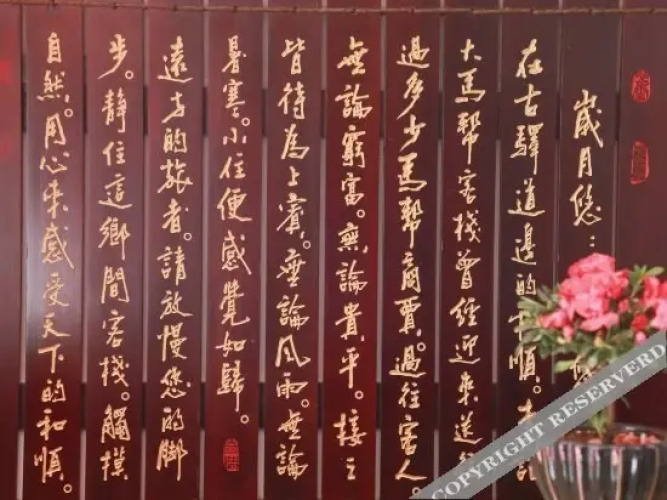 歲月悠
在古驛道邊的和順。
大馬幫客棧曾經迎來送
過多少馬幫商賈。過往客人。
無論窮富。無論貴平。接之
皆待為上賓。無論風雨。無論
暑寒。小住便感覺如歸。
遠方的旅者。請放慢您的腳
步。靜住這鄉間客棧。觸摸
自然。用心來感受天下的和順。
COPYRIGHT RESERVERD